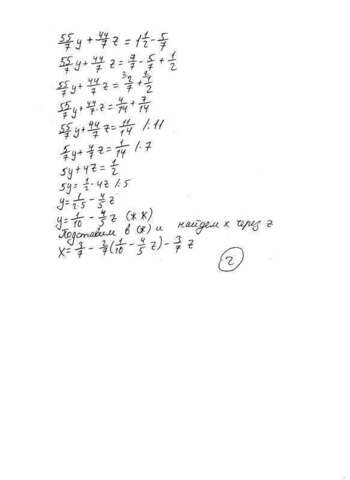 55/7 y + 44/7 z = 1 1/2 - 5/7
55/7 y + 44/7 z = 7/7 - 5/7 + 1/2
55/7 y + 44/7 z = 2/7 + 1/2
55/7 y + 44/7 · z = 4/14 + 7/14
55/7 y + 44/7 z = 11/14 /: 11
5/7 y + 4/7 z = 1/14 /· 7
5y + 4z = 1/2
5y = 1/2 - 4z /: 5
y = 1/2·5 - 4/5 z
y = 1/10 - 4/5 z (**)
Подставим в (*) и найдем x через z
x = 3/7 - 2/7 (1/10 - 4/5 z) - 3/7 z
2